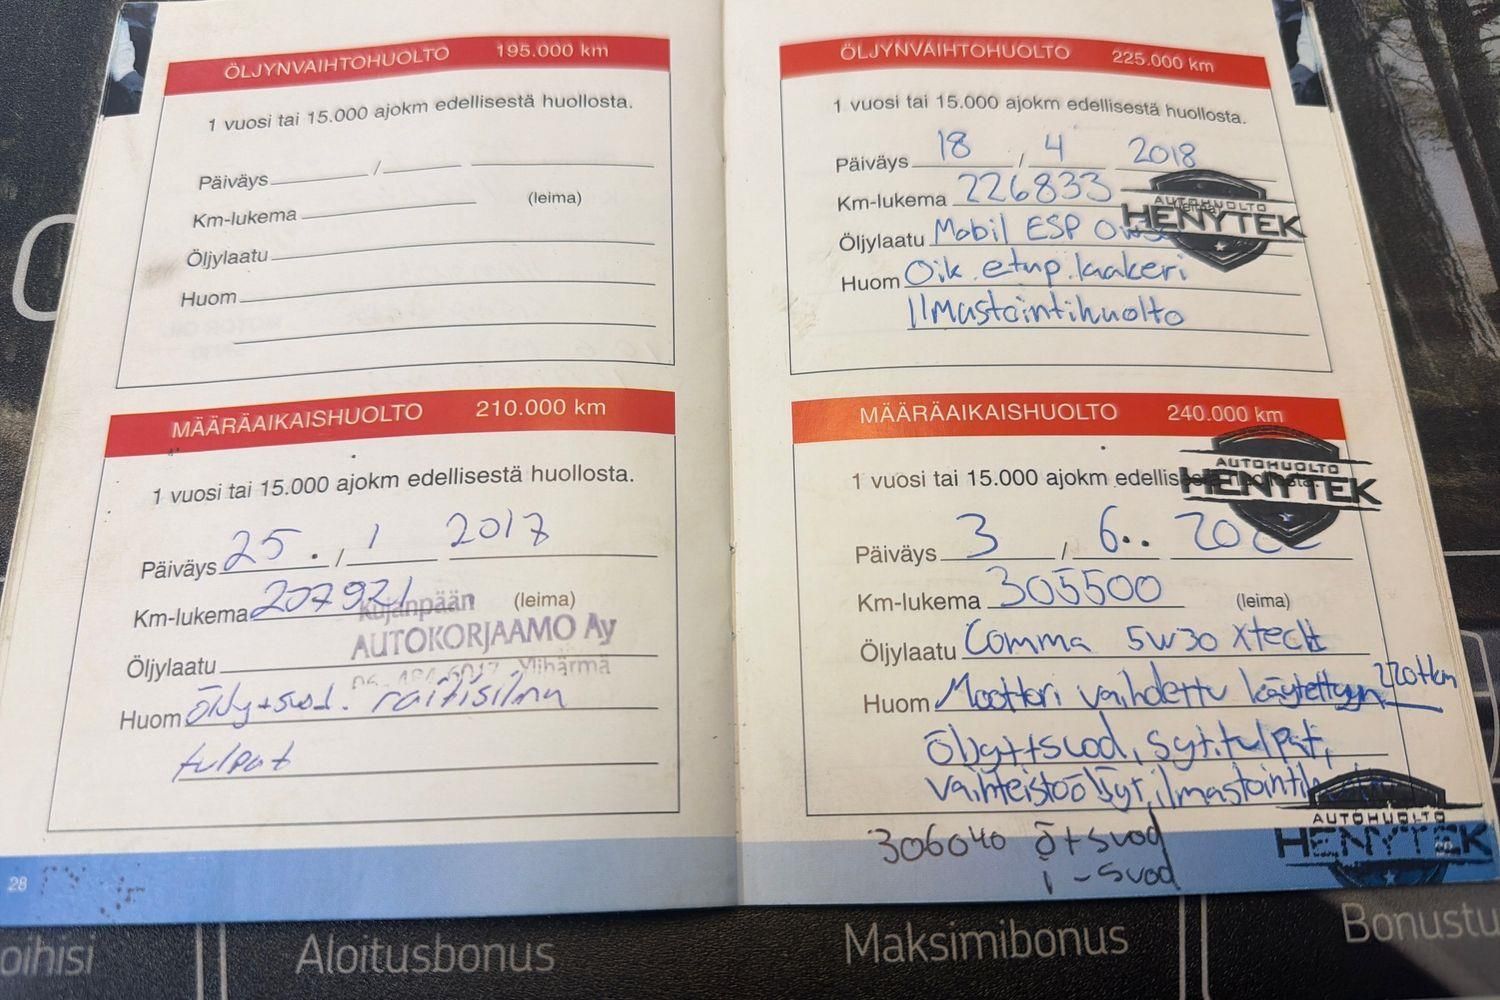 ÖLJYNVAIHTOHUOLTO 195.000 km
1 vuosi tai 15.000 ajokm edellisestä huollosta.
Päiväys /
Km-lukema (leima)
Öljylaatu
Huom
MÄÄRÄAIKAISHUOLTO 210.000 km
1 vuosi tai 15.000 ajokm edellisestä huollosta.
Päiväys 25. / 1 2017
Km-lukema 207921 (leima)
Kujanpään
AUTOKORJAAMO Ay
Öljylaatu
Ylihärmä
Huom öljy+suod. raitisilma
tulpat
28
ÖLJYNVAIHTOHUOLTO 225.000 km
1 vuosi tai 15.000 ajokm edellisestä huollosta.
Päiväys 18 / 4 2018
Km-lukema 226833
AUTOHUOLTO
HENYTEK
Öljylaatu Mobil ESP
Huom Oik. etup. laakeri
Ilmastointihuolto
MÄÄRÄAIKAISHUOLTO 240.000 km
AUTOHUOLTO
HENYTEK
1 vuosi tai 15.000 ajokm edellisestä huollosta.
Päiväys 3 / 6..
Km-lukema 305500 (leima)
Öljylaatu Comma 5w30 xtech
Huom Moottori vaihdettu käytettyyn 220tkm
Öljyt+suod, syt.tulpat,
vaihteistoöljyt,
AUTOHUOLTO
HENYTEK
306040 ö+suod
i-suod
oihisi
Aloitusbonus
Maksimibonus
Bonustu